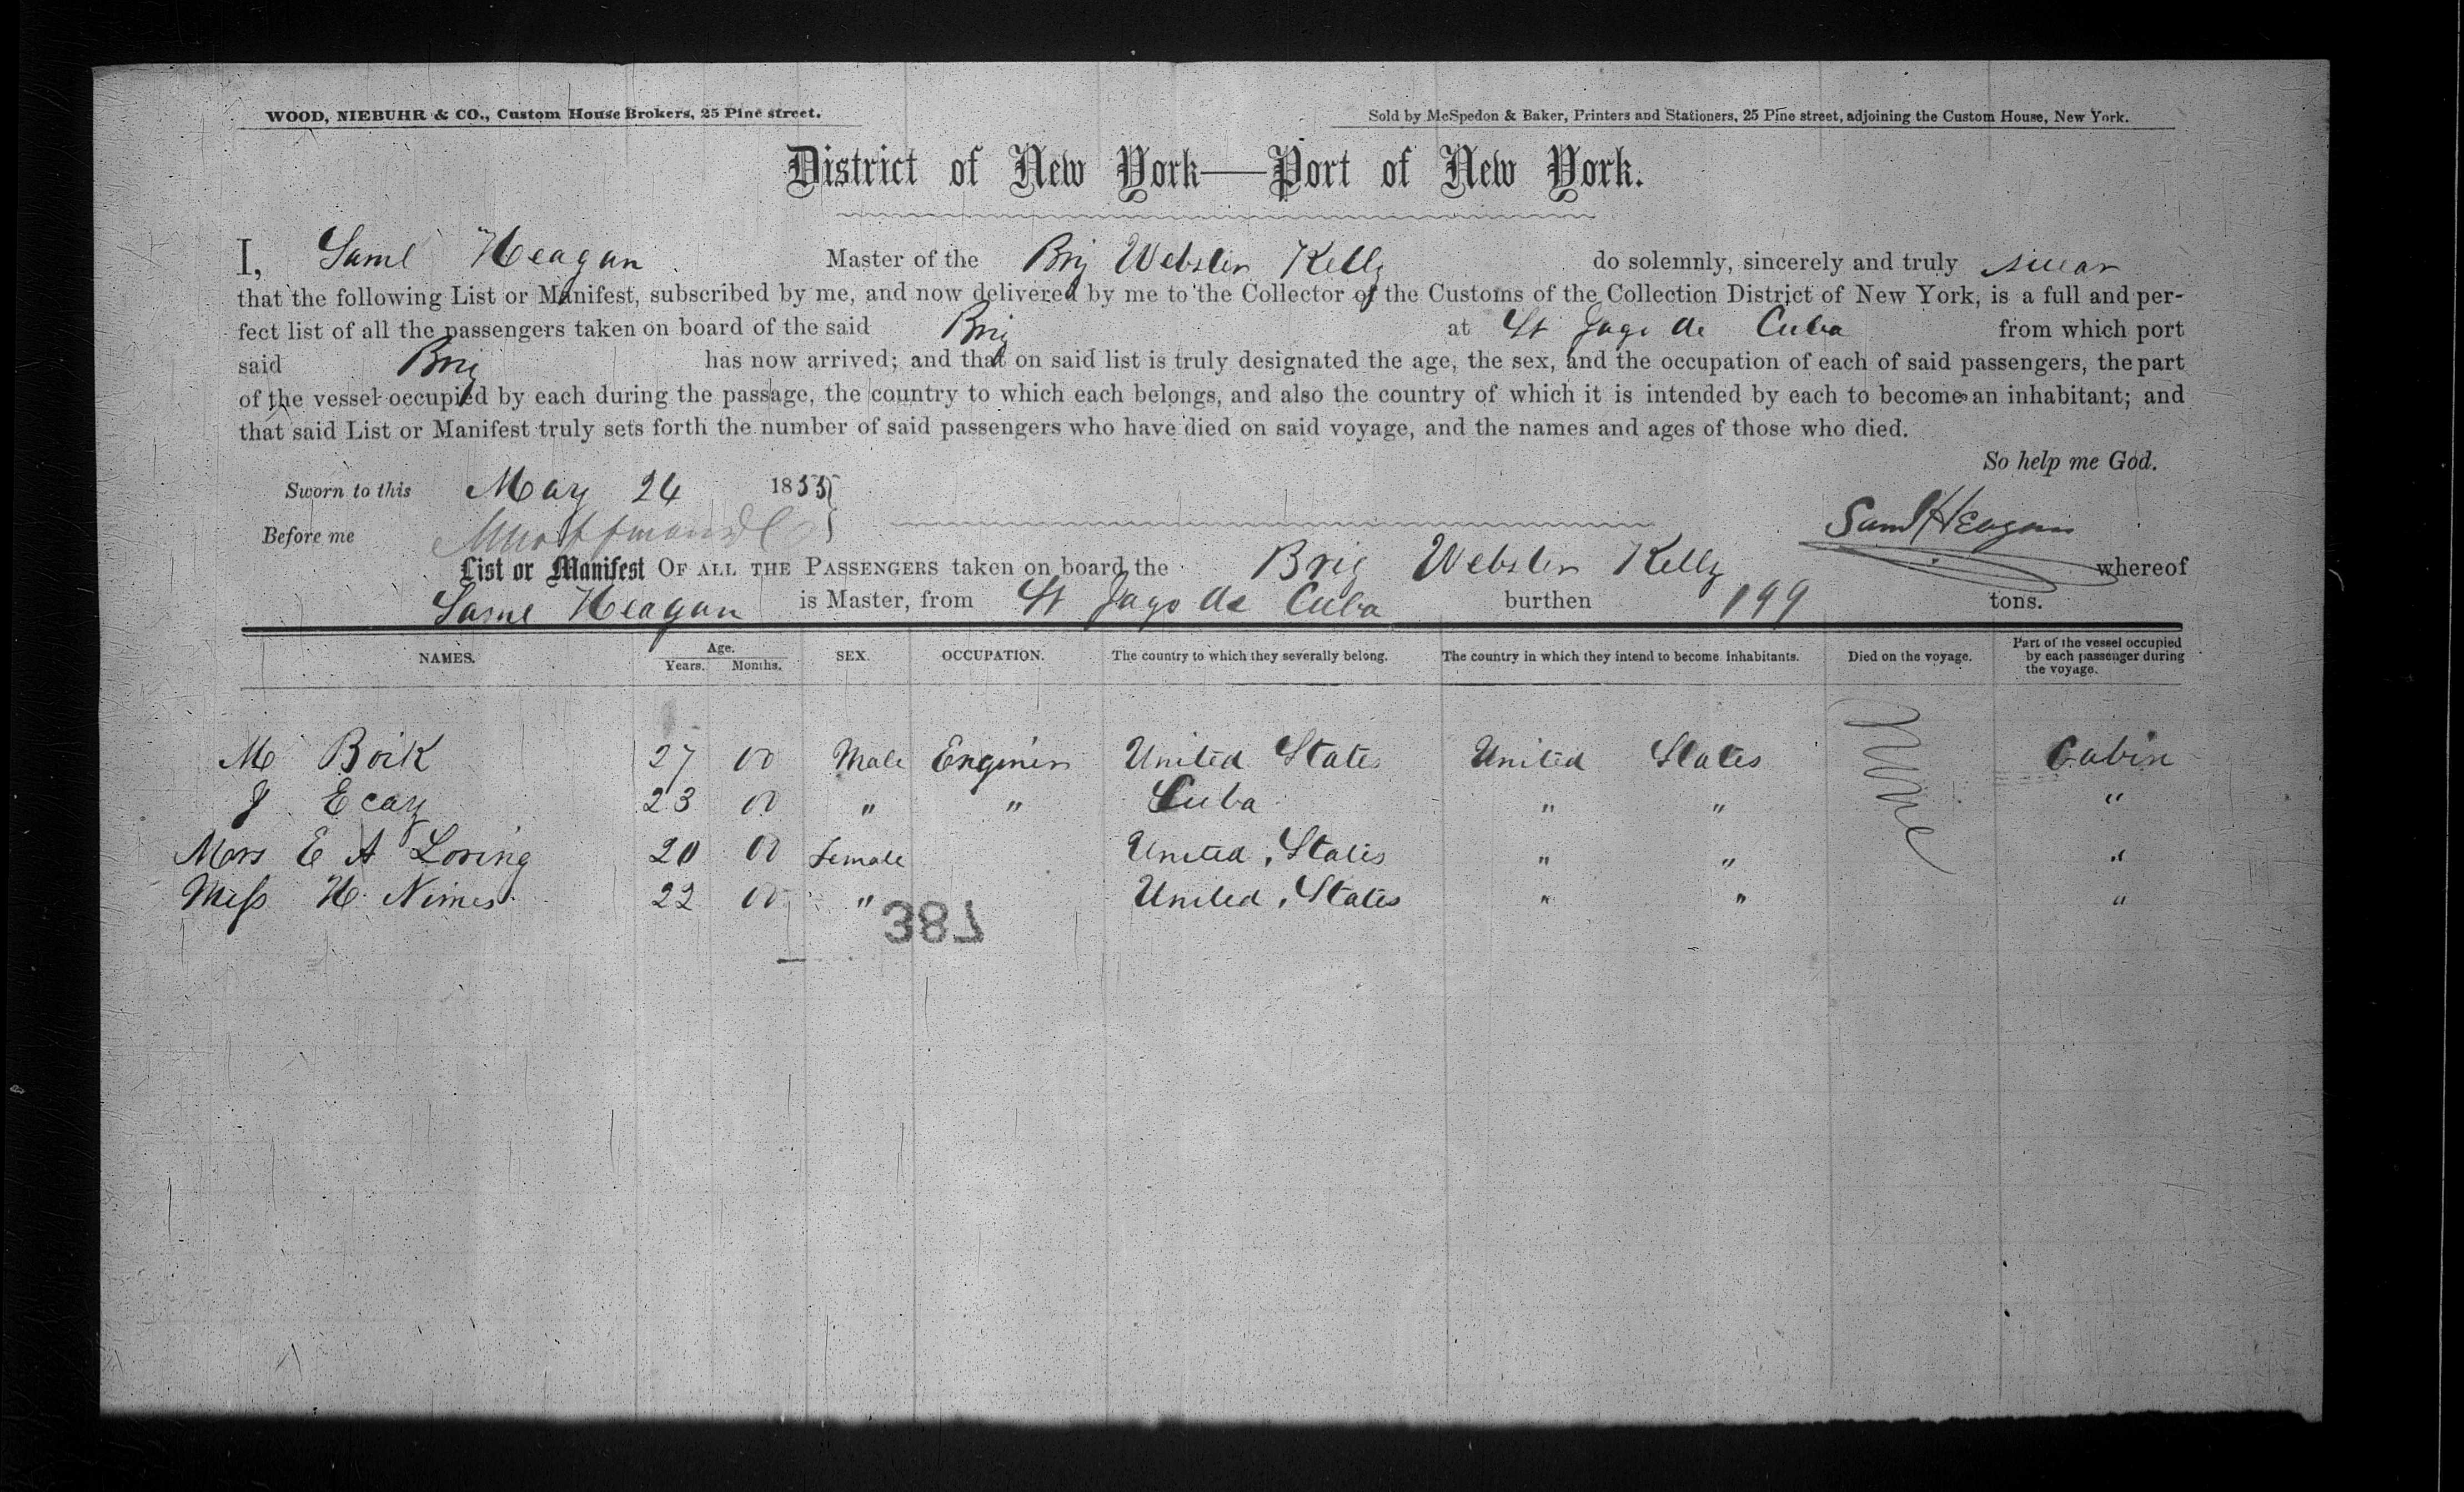 WOOD, NIEBUHR & CO., Custom House Brokers, 25 Pine street.
Sold by McSpedon & Baker, Printers and Stationers, 25 Pine street, adjoining the Custom House, New York.
District of New York—Port of New York.
I, Saml Heagan Master of the Brig Webster Kelly do solemnly, sincerely and truly swear
that the following List or Manifest, subscribed by me, and now delivered by me to the Collector of the Customs of the Collection District of New York, is a full and per-
fect list of all the passengers taken on board of the said Brig at St Jago de Cuba from which port
said Brig has now arrived; and that on said list is truly designated the age, the sex, and the occupation of each of said passengers, the part
of the vessel occupied by each during the passage, the country to which each belongs, and also the country of which it is intended by each to become an inhabitant; and
that said List or Manifest truly sets forth the number of said passengers who have died on said voyage, and the names and ages of those who died.
So help me God.
Sworn to this May 24 1855
Before me
Saml Heagan
List or Manifest OF ALL THE PASSENGERS taken on board the Brig Webster Kelly whereof
Saml Heagan is Master, from St Jago de Cuba burthen 199 tons.
NAMES. Age. Years. Months. SEX. OCCUPATION. The country to which they severally belong. The country in which they intend to become inhabitants. Died on the voyage. Part of the vessel occupied by each passenger during the voyage.
M Boik 27 00 Male Enginier United States United States None Cabin
J Ecay 23 00 " " Cuba " " "
Mrs E A Loring 20 00 Female United States " " "
Miss H Nimes 22 00 " United States " " "
387